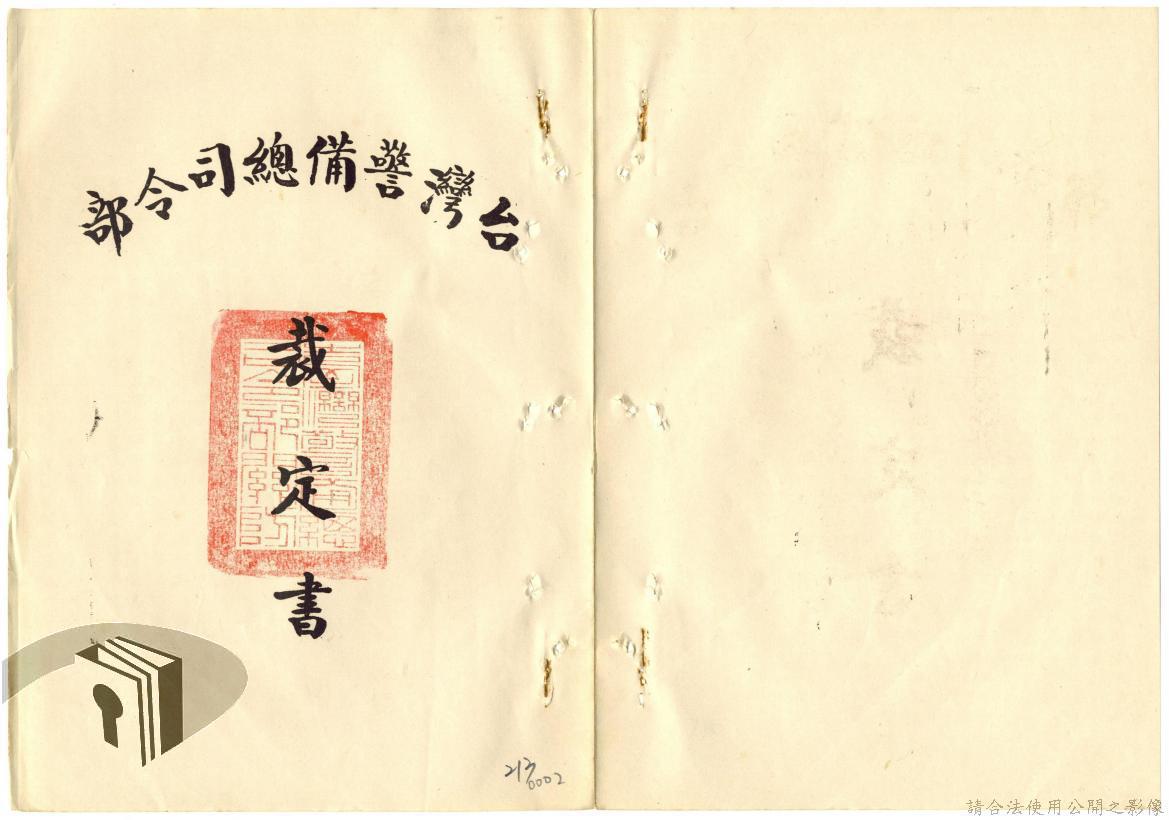 台灣警備總司令部
裁定書
213
0002
請合法使用公開之影像